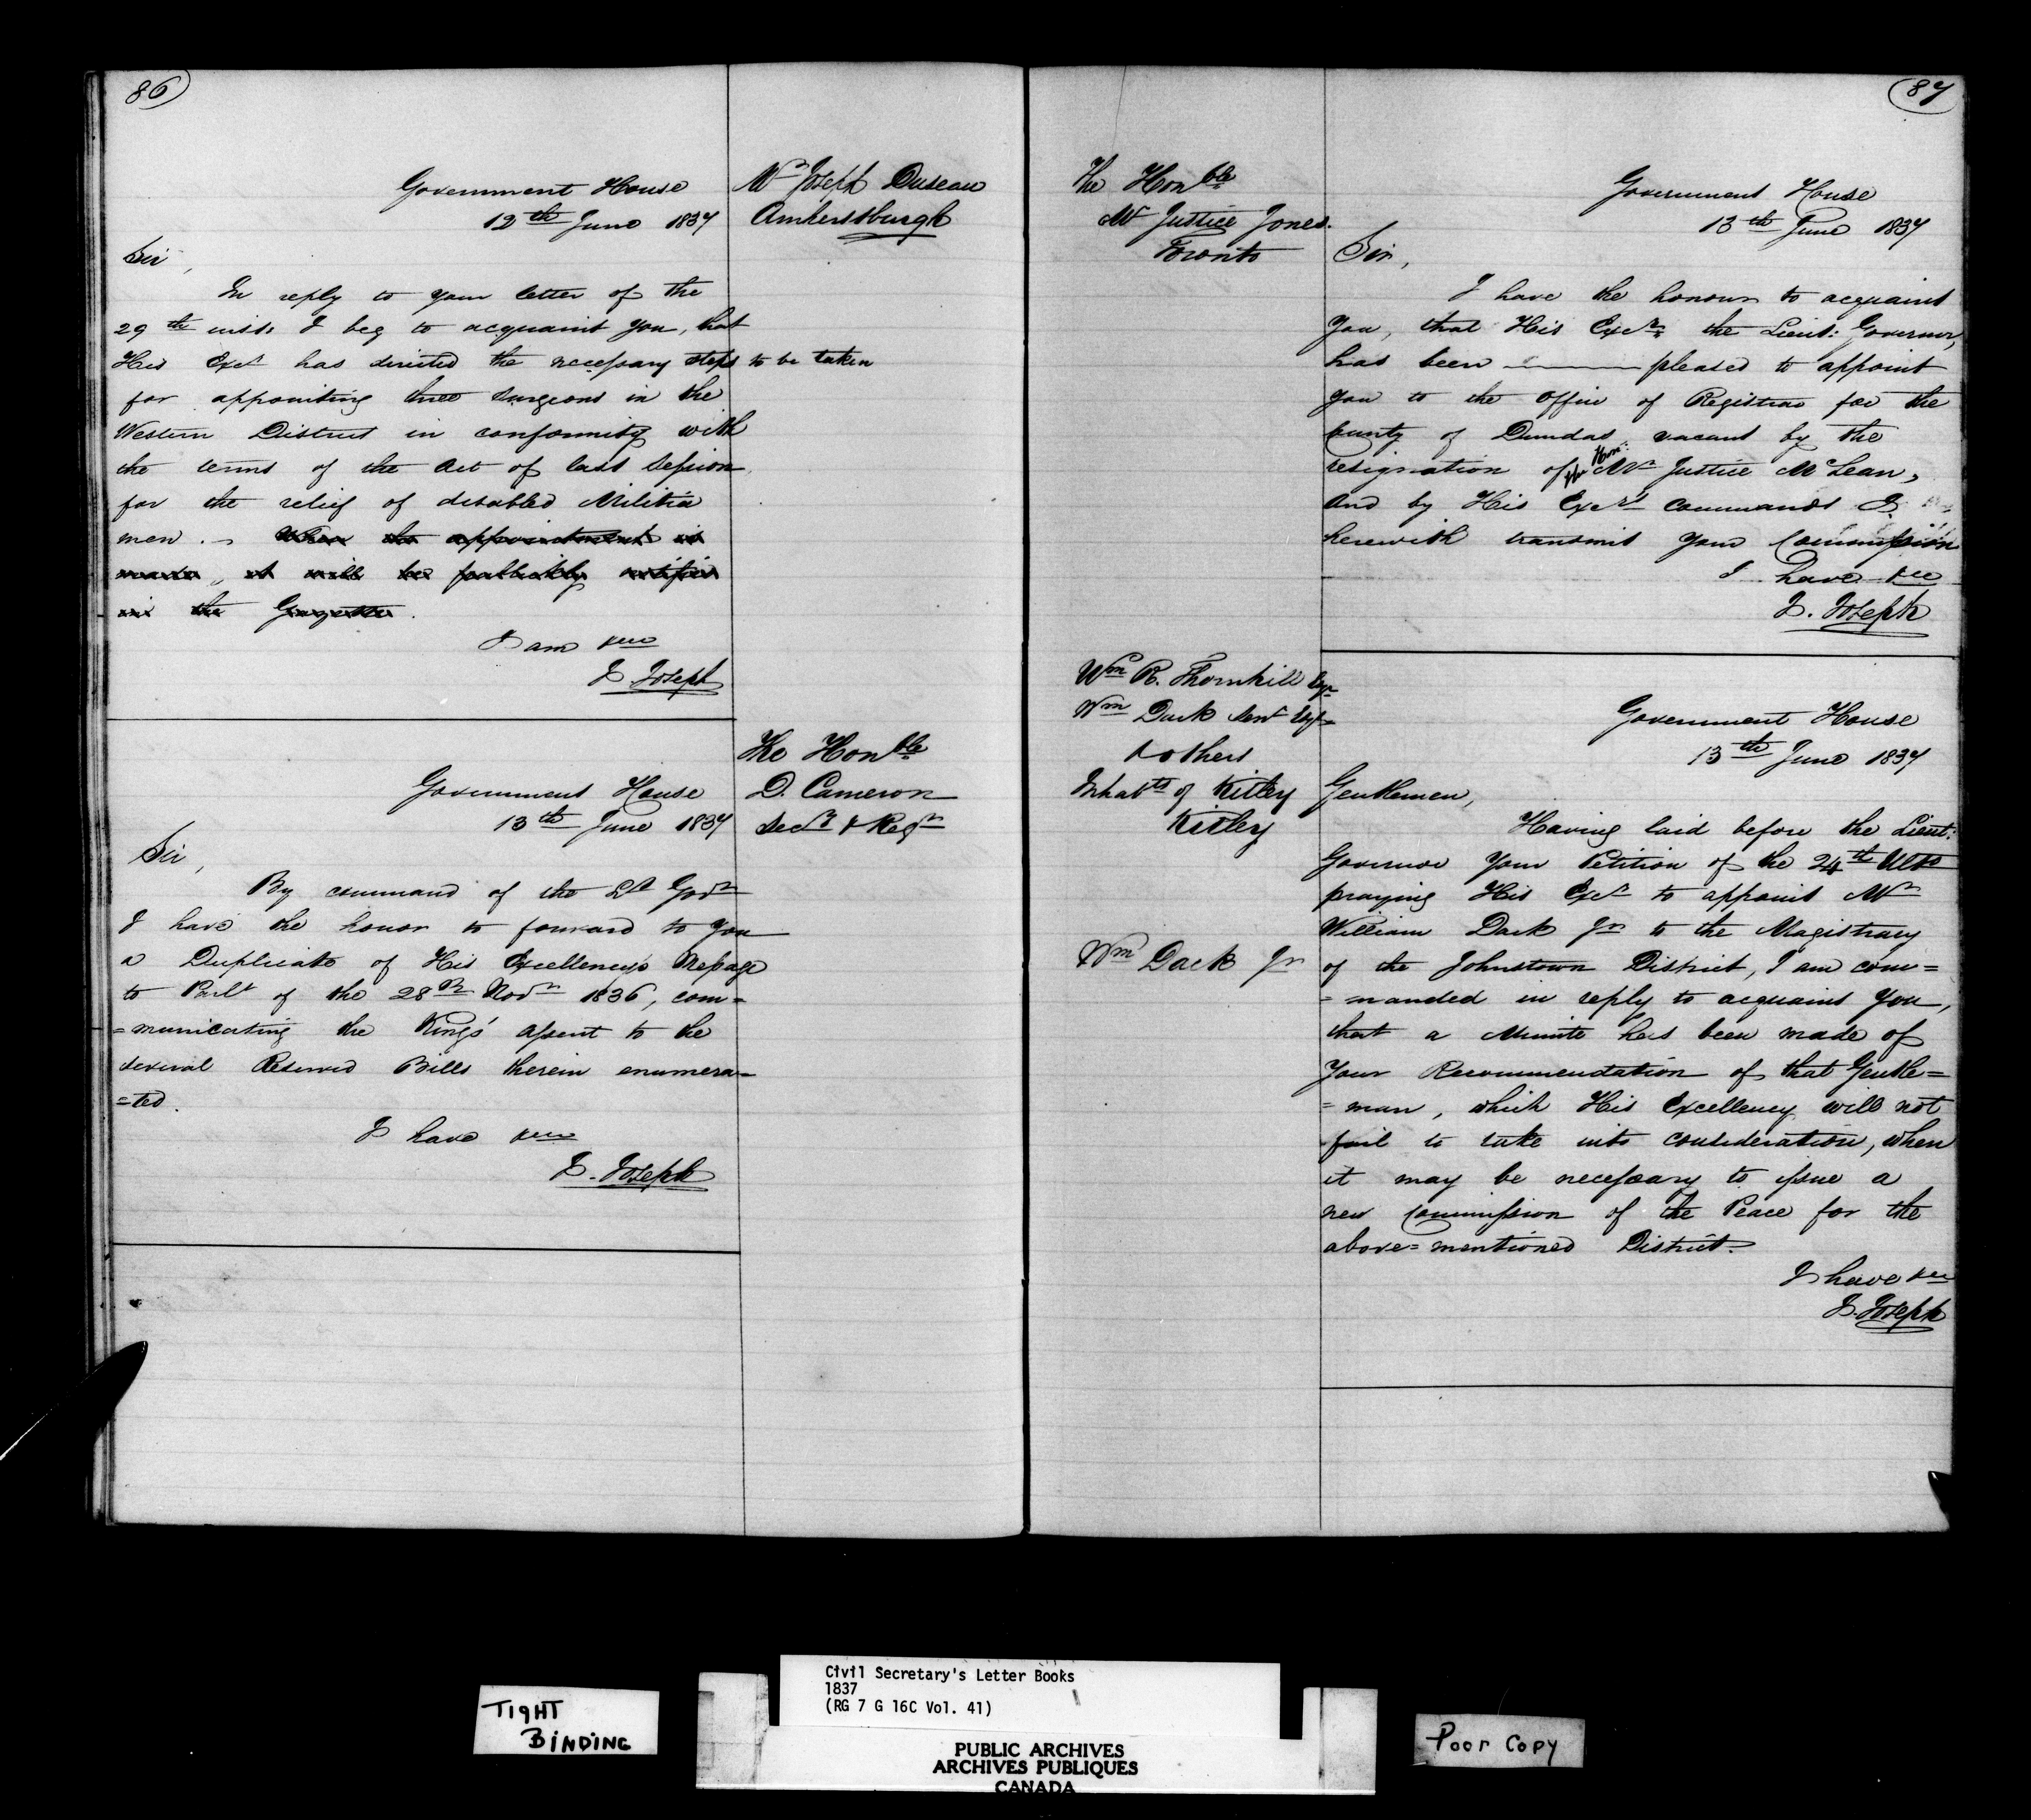 86
Mr Joseph Duseau
Amherstburgh
Government House
12th June 1837
Sir,
In reply to your letter of the
29th inst. I beg to acquaint you, that
His Excy has directed the necessary steps to be taken
for appointing three Surgeons in the
Western District in conformity with
the terms of the Act of last Session
for the relief of disabled Militia
men. – When the appointment is
made, it will be publickly notified
in the Gazette.
I am &c
J. Joseph
The Honble
D. Cameron
Secy & Regr
Government House
13th June 1837
Sir,
By command of the Lt Govr
I have the honor to forward to you
a Duplicate of His Excellency's Message
to Parlt of the 28th Novr 1836, com=
=municating the King's assent to the
several Reserved Bills therein enumera=
=ted.
I have &c
J. Joseph
87
The Honble
Mr Justice Jones.
Toronto
Government House
13th June 1837
Sir,
I have the honour to acquaint
you, that His Excy the Lieut: Governor,
has been ——— pleased to appoint
you to the Office of Registrar for the
County of Dundas, vacant by the
resignation of the Hon: Mr Justice McLean,
and by His Excy's commands I
herewith transmit your Commission
I have &c
J. Joseph
Wm R. Thornhill Esqr
Wm Dack Senr Esqr
& others
Inhabts of Kitley
Kitley
Government House
13th June 1837
Gentlemen,
Having laid before the Lieut:
Governor your Petition of the 24th Ulto
praying His Excy to appoint Mr
William Dack Jr to the Magistracy
Wm Dack Jr
of the Johnstown District, I am com=
=manded in reply to acquaint you,
that a Minute has been made of
your Recommendation of that Gentle=
=man, which His Excellency will not
fail to take into consideration, when
it may be necessary to issue a
new Commission of the Peace for the
above=mentioned District.
I have &c
J. Joseph
TIGHT
BINDING
Civil Secretary's Letter Books
1837
(RG 7 G 16C Vol. 41)
PUBLIC ARCHIVES
ARCHIVES PUBLIQUES
CANADA
Poor Copy